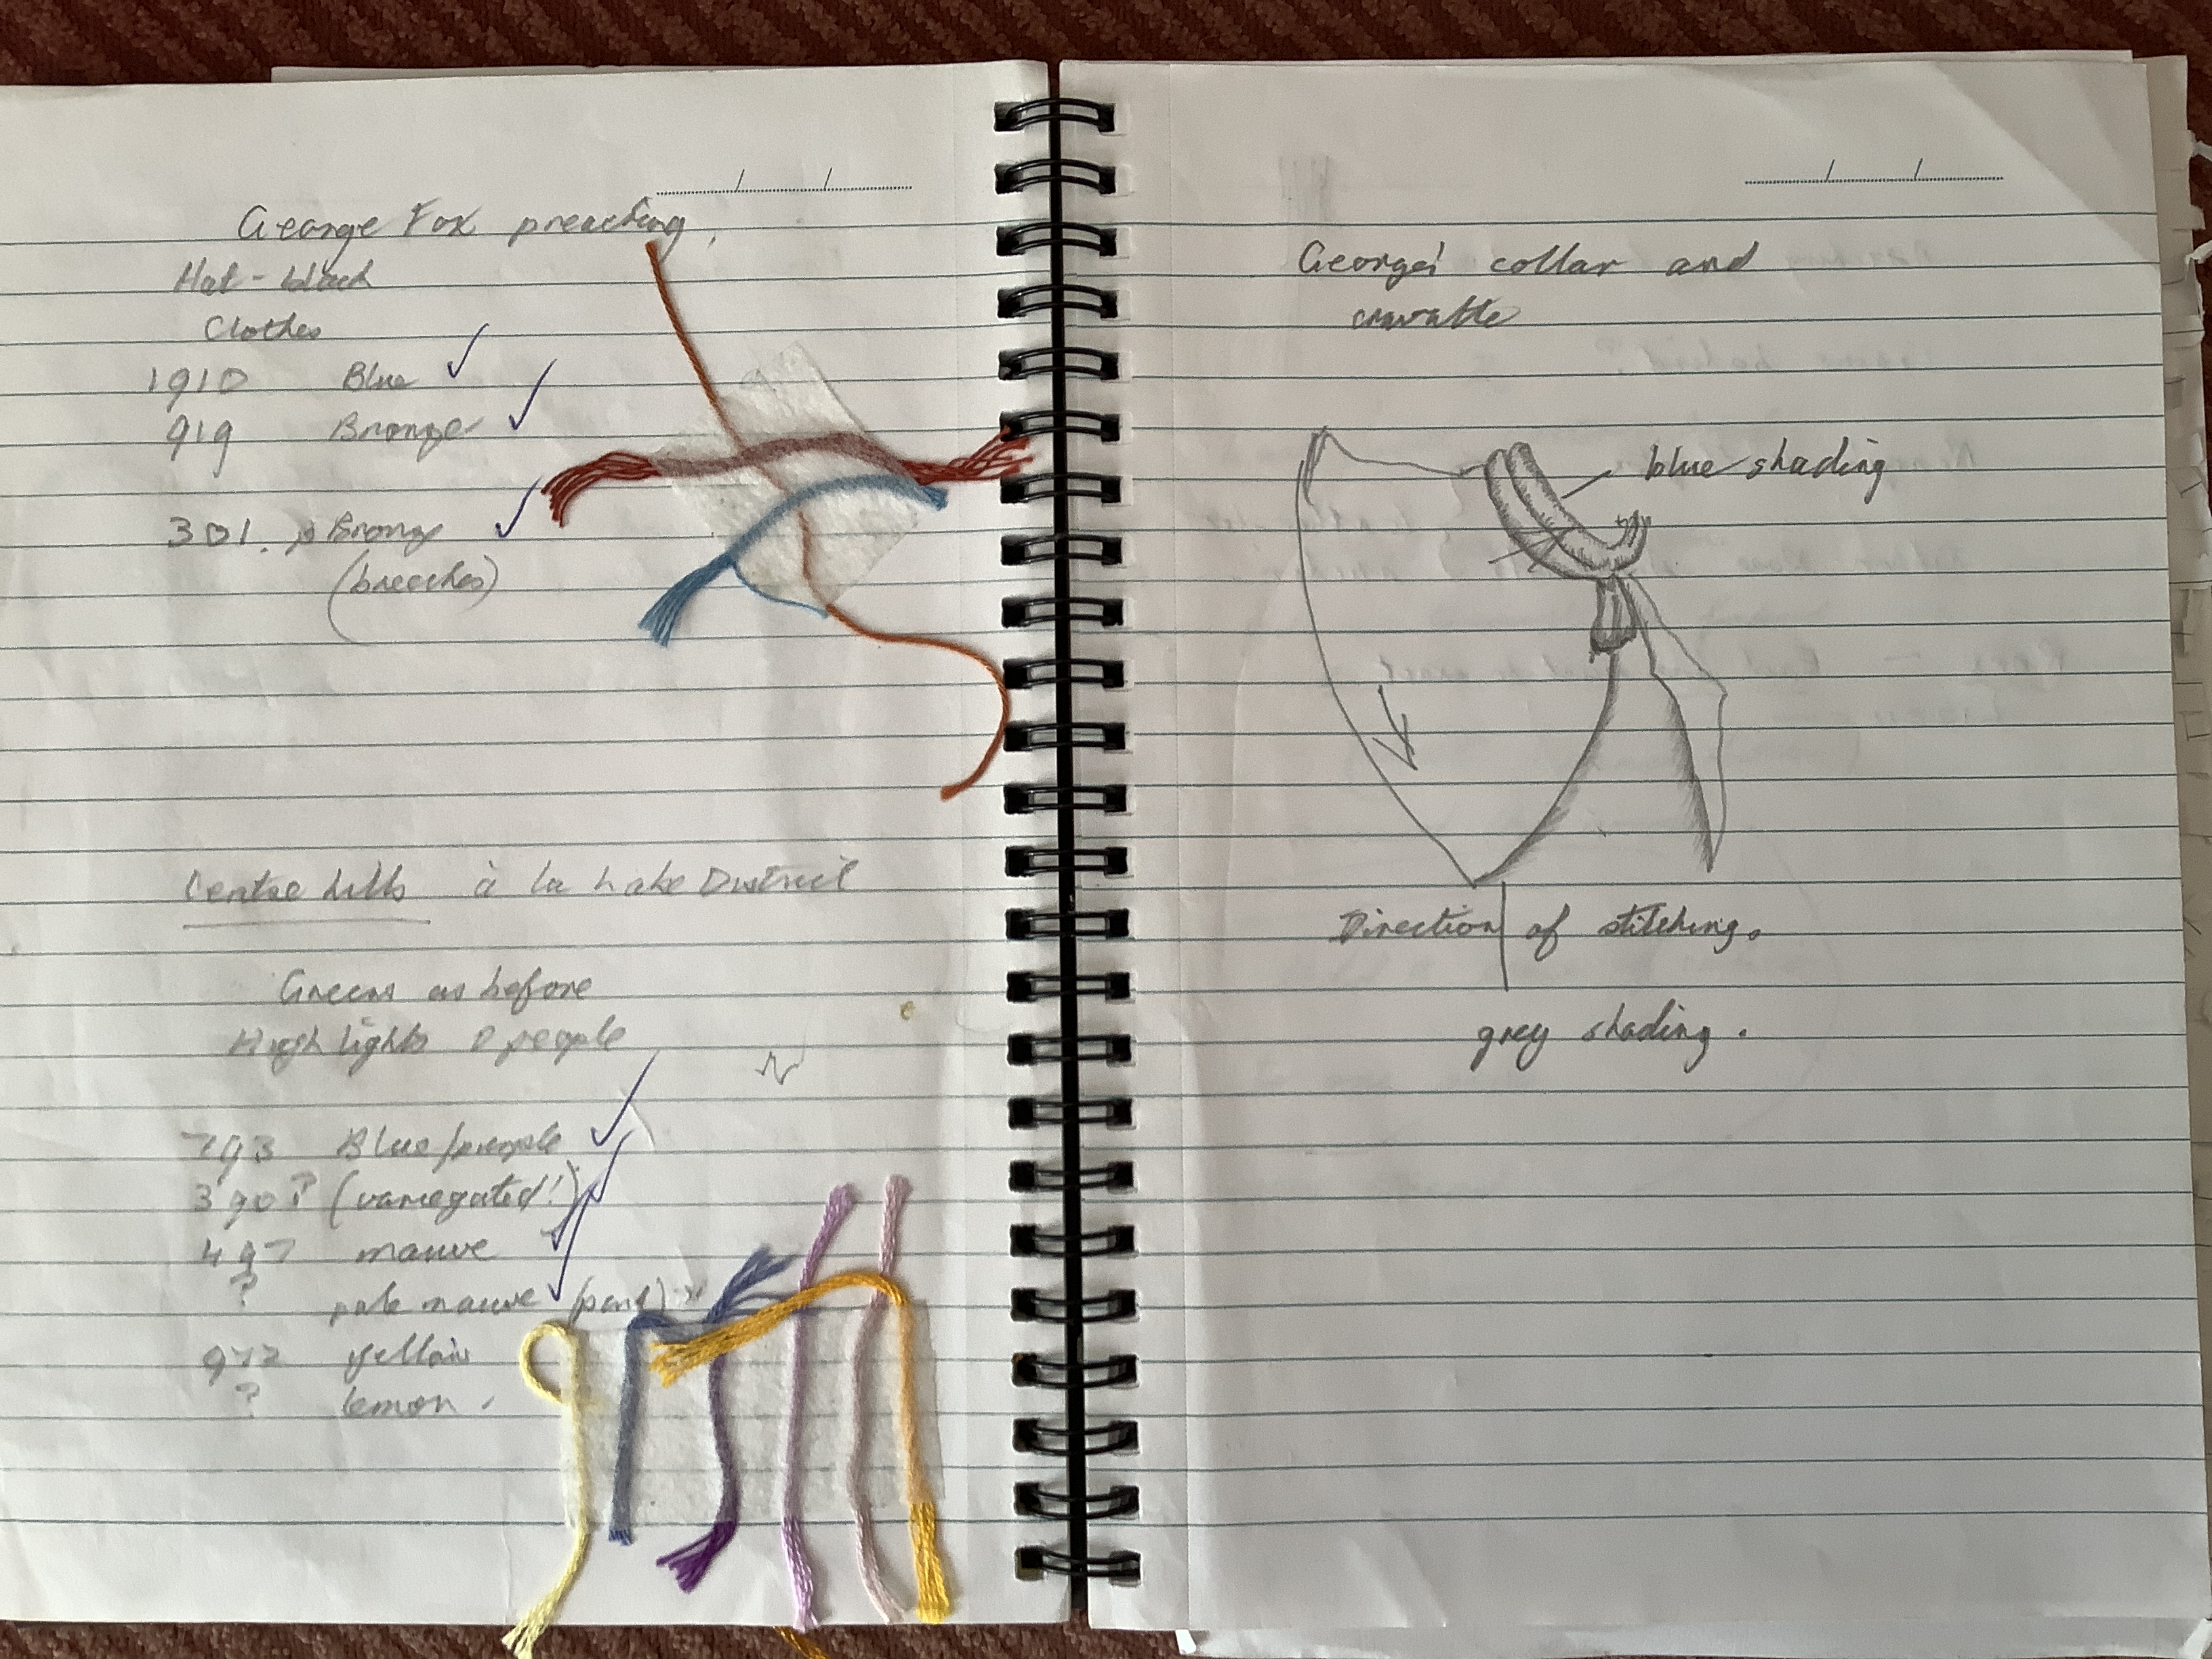 George Fox preaching,
Hat - black
Clothes
1910 Blue ✓
919 Bronze ✓
301. Bronze ✓
(breeches)
Centre hills à la Lake District
Greens as before
High lights people
793 Blue/purple ✓
390? (variegated!) ✓
497 mauve ✓
? pale mauve ✓
972 yellow
? lemon
George's collar and
cravatte
blue shading
Direction of stitching.
grey shading.